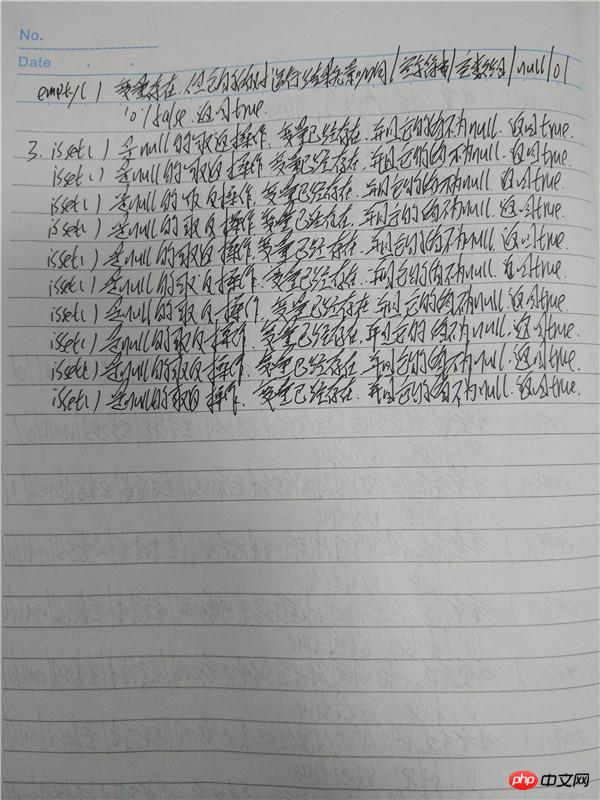 No.
Date
empty( ) 变量存在.但它的值对运行结果无影响/空字符串/空数组/null/0/
'0'/false.返回true.
3. isset( ) 是null的取反操作.变量已经存在.并且它的值不为null.返回true.
isset( ) 是null的取反操作.变量已经存在.并且它的值不为null.返回true.
isset( ) 是null的取反操作.变量已经存在.并且它的值不为null.返回true.
isset( ) 是null的取反操作.变量已经存在.并且它的值不为null.返回true.
isset( ) 是null的取反操作.变量已经存在.并且它的值不为null.返回true.
isset( ) 是null的取反操作.变量已经存在.并且它的值不为null.返回true.
isset( ) 是null的取反操作.变量已经存在.并且它的值不为null.返回true.
isset( ) 是null的取反操作.变量已经存在.并且它的值不为null.返回true.
isset( ) 是null的取反操作.变量已经存在.并且它的值不为null.返回true.
isset( ) 是null的取反操作.变量已经存在.并且它的值不为null.返回true.
php中文网